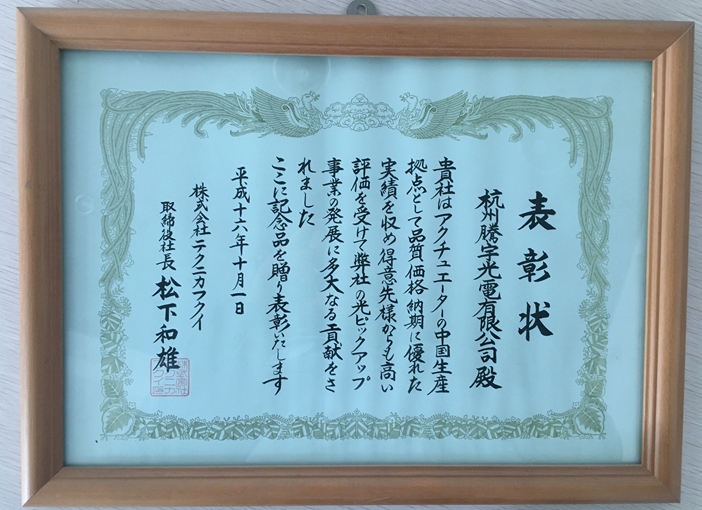 表彰状
杭州騰宇光電有限公司殿
貴社はアクチュエーターの中国生産
拠点として品質価格納期に優れた
実績を収め得意先様からも高い
評価を受けて弊社の光ピックアップ
事業の発展に多大なる貢献をさ
れました
ここに記念品を贈り表彰いたします
平成十六年十月一日
株式会社テクニカフクイ
取締役社長 松下和雄